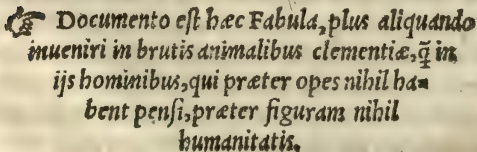 ☞ Documento eſt hæc Fabula, plus aliquando
inueniri in brutis animalibus clementiæ, q̃ in
ijs hominibus, qui præter opes nihil ha-
bent penſi, præter figuram nihil
humanitatis.